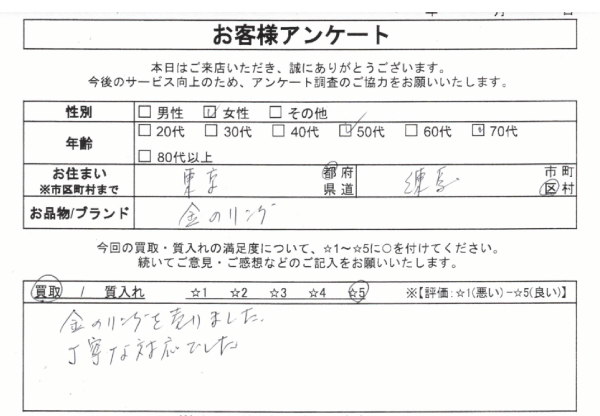 年 月 日
お客様アンケート
本日はご来店いただき、誠にありがとうございます。
今後のサービス向上のため、アンケート調査のご協力をお願いいたします。
性別 □ 男性 ☑ 女性 □ その他
年齢 □ 20代 □ 30代 □ 40代 ☑ 50代 □ 60代 □ 70代
□ 80代以上
お住まい ※市区町村まで 東京 都府県道 練馬 市町区村
お品物/ブランド 金のリング
今回の買取・質入れの満足度について、☆1～☆5に○を付けてください。
続いてご意見・ご感想などのご記入をお願いいたします。
買取 / 質入れ ☆1 ☆2 ☆3 ☆4 ☆5 ※【評価:☆1(悪い)−☆5(良い)】
金のリングを売りました.
丁寧な対応でした